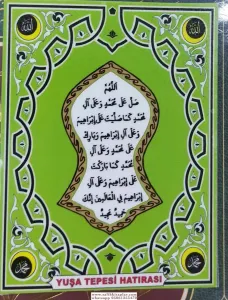 الله
الله
اللهم
صل على محمد وعلى آل
محمد كما صليت على إبراهيم
وعلى آل إبراهيم وبارك
على محمد وعلى آل
محمد كما باركت
على إبراهيم وعلى آل
إبراهيم في العالمين إنك
حميد مجيد
محمد
محمد
YUŞA TEPESİ HATIRASI